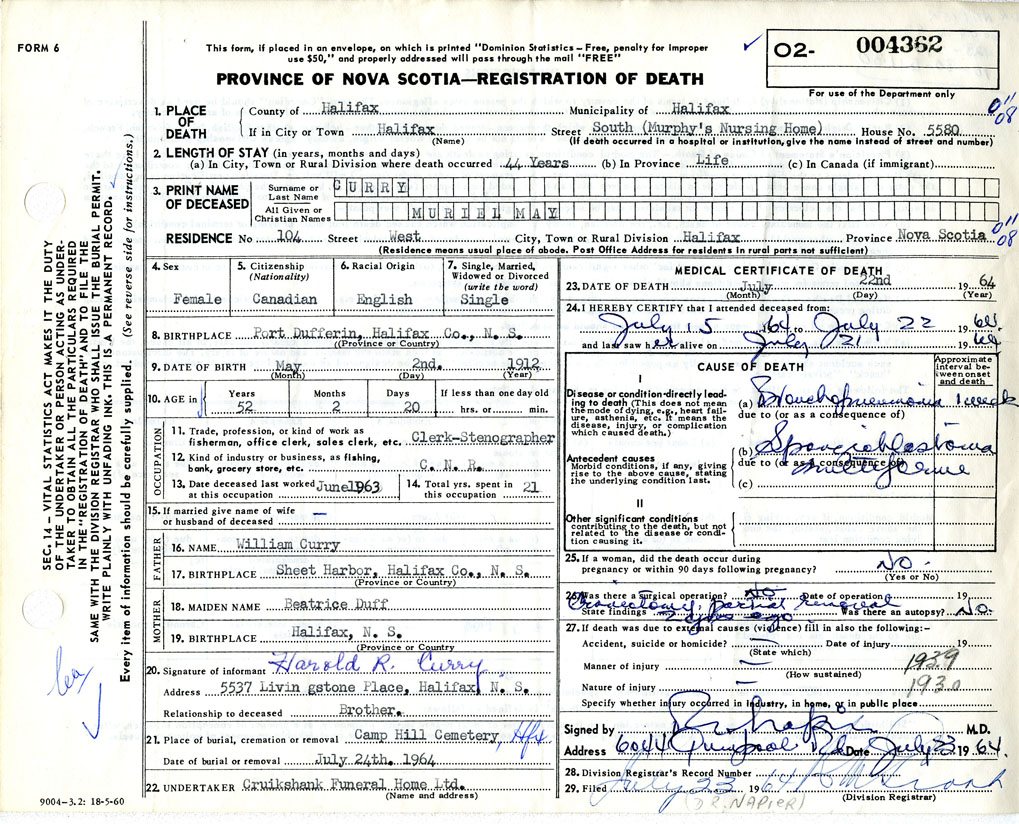 FORM 6
This form, if placed in an envelope, on which is printed "Dominion Statistics – Free, penalty for improper
use $50," and properly addressed will pass through the mail "FREE"
✓ O2- 004362
PROVINCE OF NOVA SCOTIA—REGISTRATION OF DEATH
For use of the Department only
SEC. 14 – VITAL STATISTICS ACT MAKES IT THE DUTY
OF THE UNDERTAKER OR PERSON ACTING AS UNDER-
TAKER TO OBTAIN ALL THE PARTICULARS REQUIRED
IN THE "REGISTRATION OF DEATH" AND TO FILE THE
SAME WITH THE DIVISION REGISTRAR WHO SHALL ISSUE THE BURIAL PERMIT.
WRITE PLAINLY WITH UNFADING INK. THIS IS A PERMANENT RECORD.
Every item of information should be carefully supplied. (See reverse side for instructions.)
1. PLACE OF DEATH
County of Halifax Municipality of Halifax
If in City or Town Halifax Street South (Murphy's Nursing Home) House No. 5580
(Name) (If death occurred in a hospital or institution, give the name instead of street and number)
0"08
2. LENGTH OF STAY (in years, months and days)
(a) In City, Town or Rural Division where death occurred 44 Years (b) In Province Life (c) In Canada (if immigrant)
3. PRINT NAME OF DECEASED
Surname or Last Name CURRY
All Given or Christian Names MURIEL MAY
RESIDENCE No 104 Street West City, Town or Rural Division Halifax Province Nova Scotia
0"08
(Residence means usual place of abode. Post Office Address for residents in rural parts not sufficient)
4. Sex
Female
5. Citizenship (Nationality)
Canadian
6. Racial Origin
English
7. Single, Married, Widowed or Divorced (write the word)
Single
8. BIRTHPLACE Port Dufferin, Halifax Co., N. S.
(Province or Country)
9. DATE OF BIRTH May 2nd. 1912
(Month) (Day) (Year)
10. AGE in
Years Months Days If less than one day old
52 2 20 hrs. or min.
OCCUPATION
11. Trade, profession, or kind of work as
fisherman, office clerk, sales clerk, etc. Clerk-Stenographer
12. Kind of industry or business, as fishing,
bank, grocery store, etc. C. N. R.
13. Date deceased last worked at this occupation June 1963
14. Total yrs. spent in this occupation 21
15. If married give name of wife
or husband of deceased —
FATHER
16. NAME William Curry
17. BIRTHPLACE Sheet Harbor, Halifax Co., N. S.
(Province or Country)
MOTHER
18. MAIDEN NAME Beatrice Duff
19. BIRTHPLACE Halifax, N. S.
(Province or Country)
20. Signature of informant Harold R. Curry
Address 5537 Livin gstone Place, Halifax, N. S.
Relationship to deceased Brother.
21. Place of burial, cremation or removal Camp Hill Cemetery, Hfx
Date of burial or removal July 24th. 1964
22. UNDERTAKER Cruikshank Funeral Home Ltd.
(Name and address)
9004-3.2: 18-5-60
MEDICAL CERTIFICATE OF DEATH
23. DATE OF DEATH July 22nd 1964
(Month) (Day) (Year)
24. I HEREBY CERTIFY that I attended deceased from:
July 15 '64 to July 22 1964
and last saw her alive on July 21 1964
CAUSE OF DEATH
Approximate interval between onset and death
I
Disease or condition directly leading to death (This does not mean the mode of dying, e.g., heart failure, asthenia, etc. It means the disease, injury, or complication which caused death.)
(a) Bronchopneumonia 1 week
due to (or as a consequence of)
Antecedent causes
Morbid conditions, if any, giving rise to the above cause, stating the underlying condition last.
(b) Spongioblastoma multiforme
due to (or as a consequence of)
(c)
II
Other significant conditions
contributing to the death, but not related to the disease or condition causing it.
25. If a woman, did the death occur during
pregnancy or within 90 days following pregnancy? No.
(Yes or No)
26. Was there a surgical operation? No Date of operation 19
Craniotomy, partial removal
State findings 2 yrs ago Was there an autopsy? No.
27. If death was due to external causes (violence) fill in also the following:–
Accident, suicide or homicide? — Date of injury 19
(State which)
Manner of injury — 1939
(How sustained)
Nature of injury — 1930
Specify whether injury occurred in industry, in home, or in public place
Signed by M.D.
Address 6044 Quinpool Rd Date July 23 1964.
28. Division Registrar's Record Number
29. Filed July 23 1964
(Division Registrar)
(DR. NAPIER)